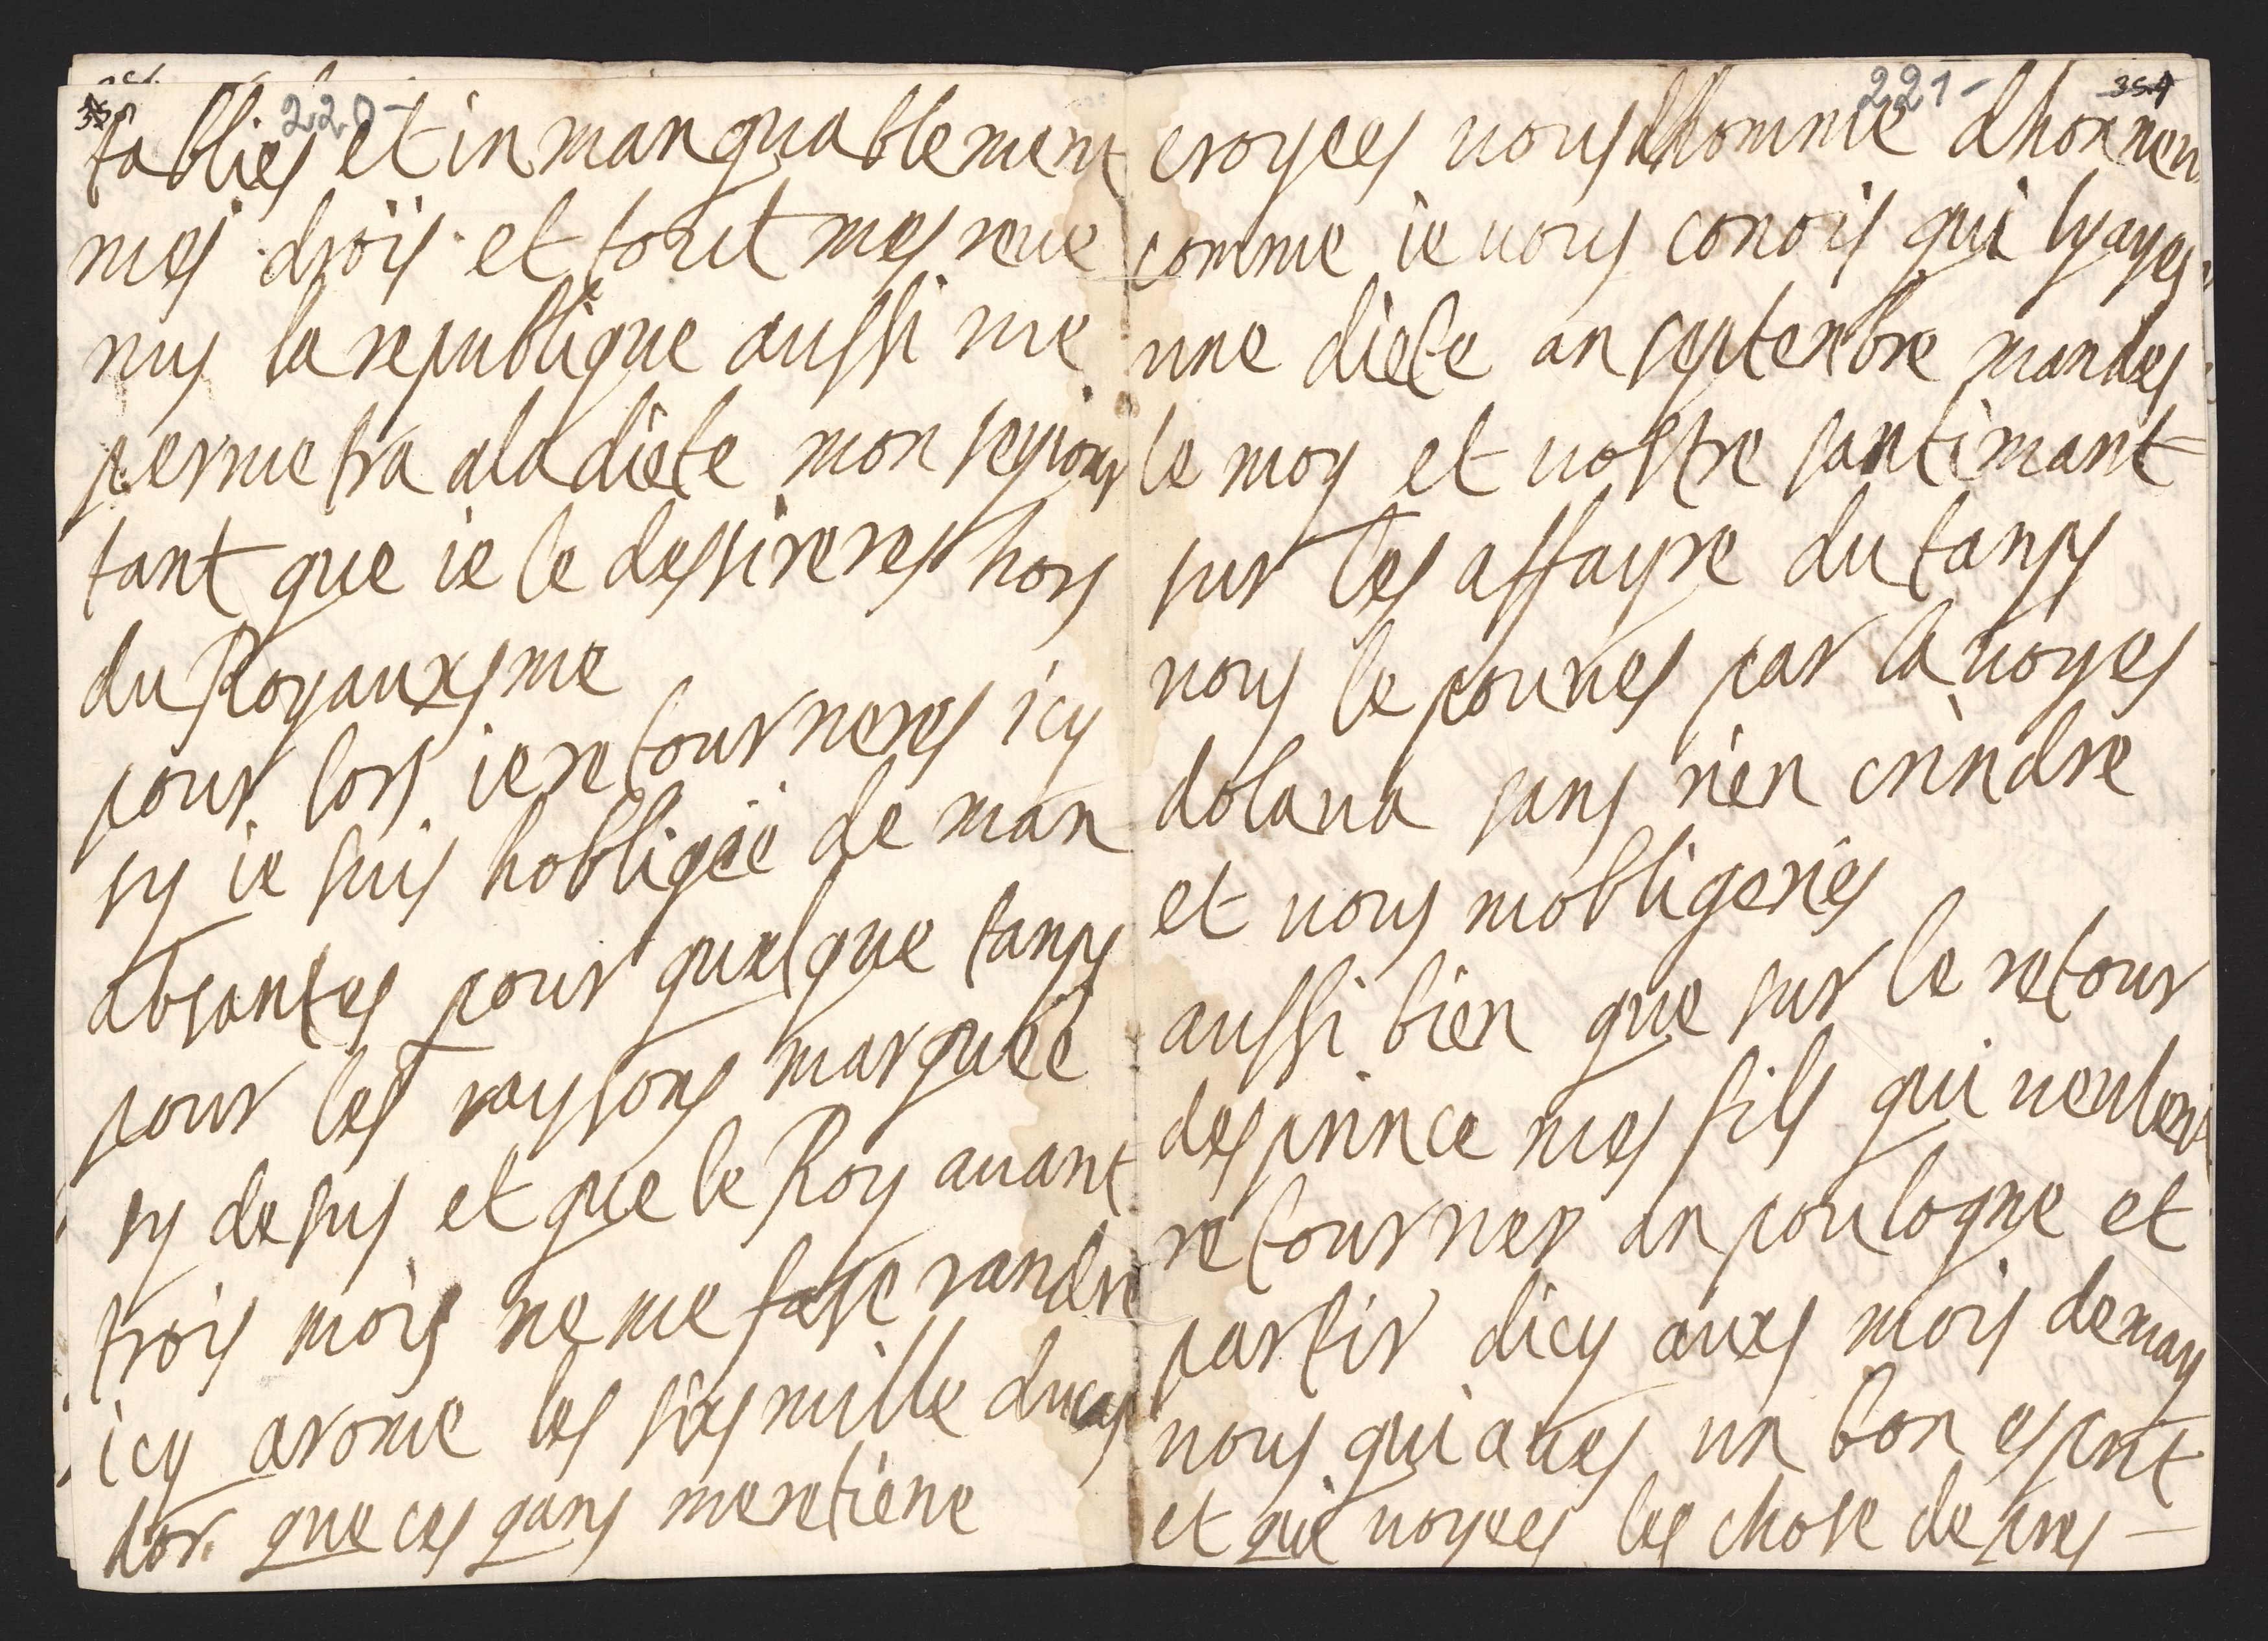 220-
tablies et in manquablement
mes drois et tout mes reve
nus la republique aussi me
permetra ala diete mon seyiour
tant que ie le dessireres hors
du Royauxsme
pour lors ie retourneres icy
sy ie suis hobligeë de man
absantes pour quelque tanps
pour les raysons marquëe
sy desus et que le Roy avant
trois mois ne me fase randre
icy a rome les sixs mille ducas
dor. que ces gans me retiene
221- 359
croyees vous dhomme dhonneu
comme ie vous conois qui lyayes
une diete an septenbre mandes
le moy et vostre santimant
sur les affayre du tanps
vous le pouves par la voyes
dolava sans rien crindre
et vous mobligeries
aussi bien que sur le retour
des prince mes fils qui veulent
retourner an poulogne et
partir dicy auxs mois de may
vous qui aves un bon esprit
et qui voyees les chose de pres -